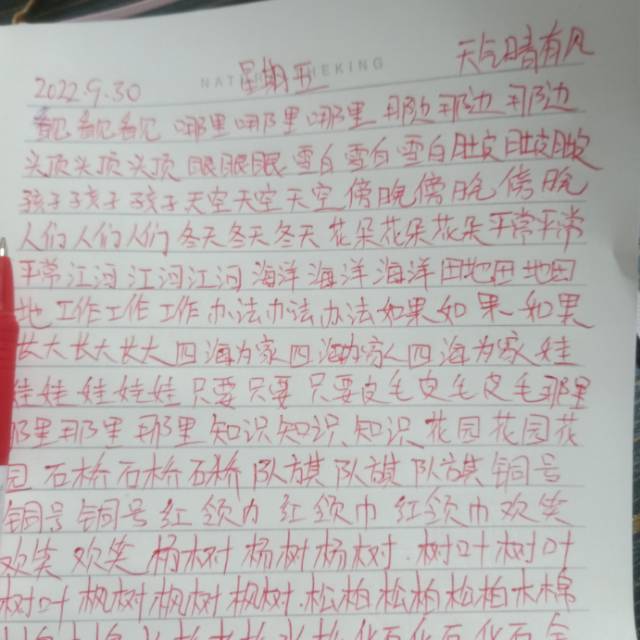 NAT GEEKING
2022.9.30 星期五 天气晴有风
看见看见看见 哪里哪里哪里 那边那边那边
头顶头顶头顶 眼眼眼 雪白雪白雪白肚皮肚皮肚皮
孩子孩子孩子天空天空天空 傍晚傍晚傍晚
人们人们人们 冬天冬天冬天 花朵花朵花朵平常平常
平常江河江河江河 海洋海洋海洋 田地田地田
地 工作工作工作 办法办法办法如果如果如果
长大长大长大四海为家四海为家四海为家娃
娃娃娃娃娃 只要只要只要皮毛皮毛皮毛那里
那里那里那里 知识知识知识 花园花园花
园 石桥石桥石桥 队旗队旗队旗铜号
铜号铜号 红领巾红领巾红领巾欢笑
欢笑欢笑 杨树杨树杨树 树叶树叶
树叶 枫树枫树枫树 松柏松柏松柏木棉